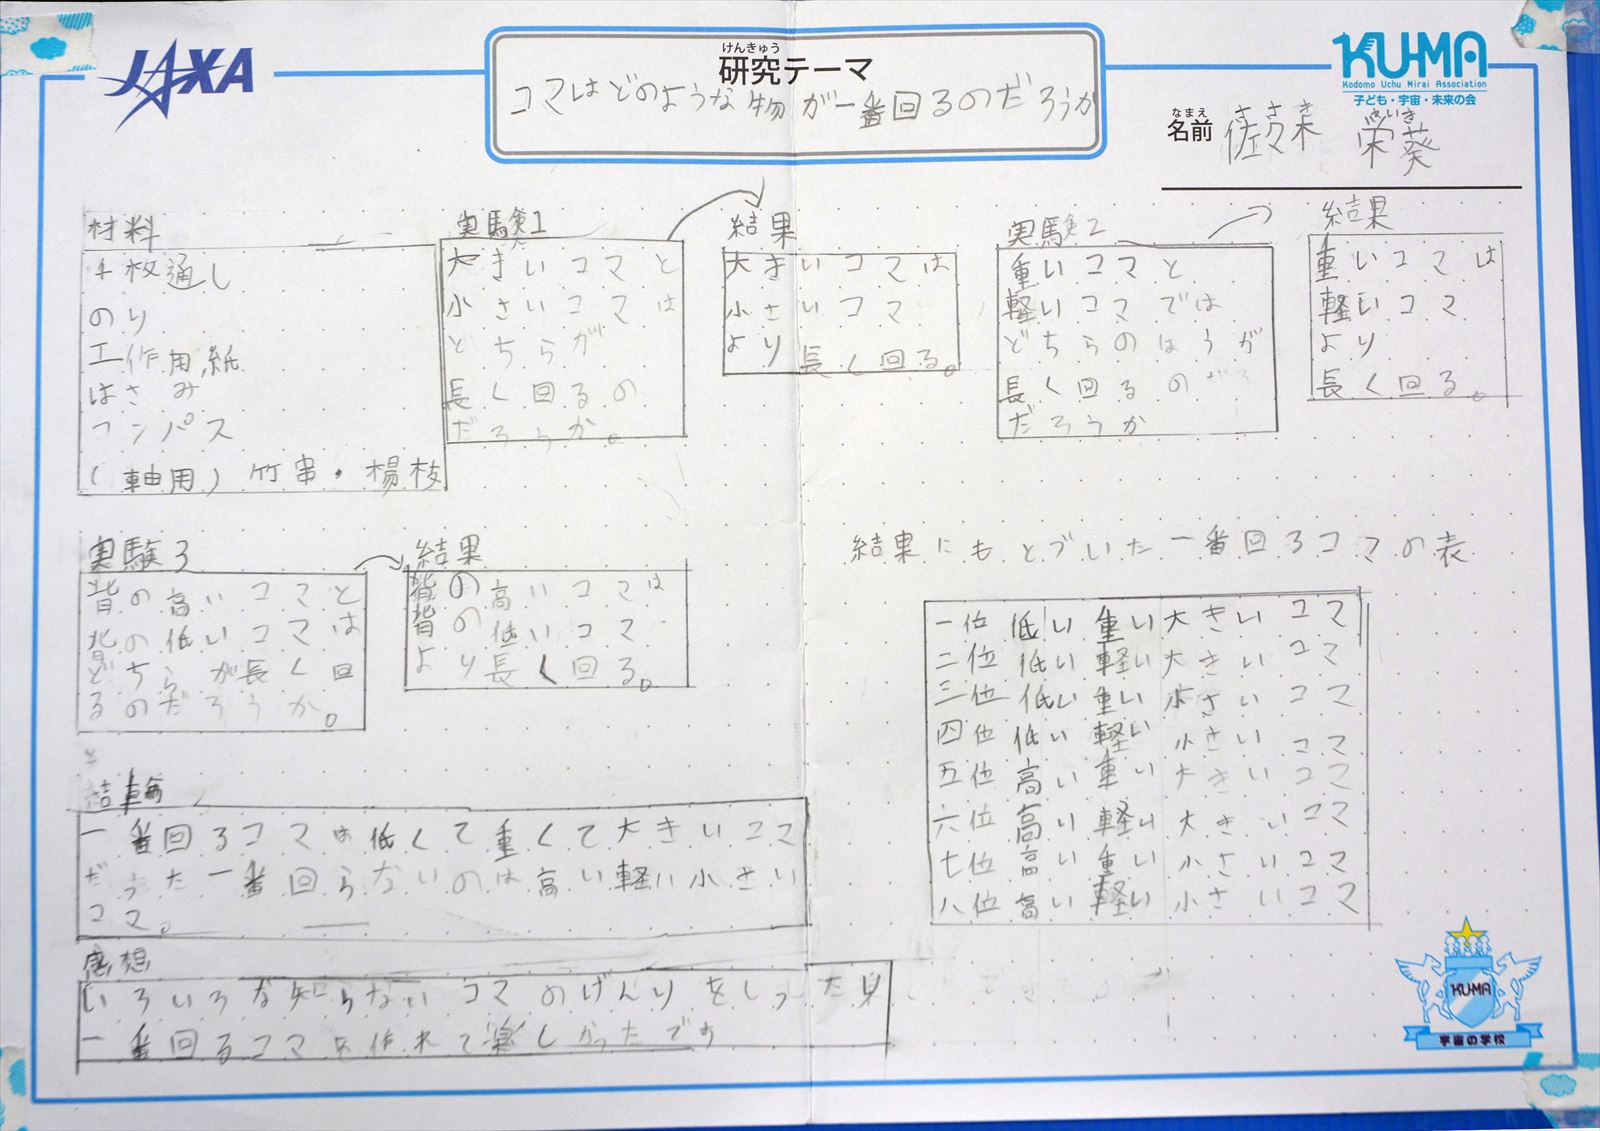 JAXA
けんきゅう
研究テーマ
コマはどのような物が一番回るのだろうか
KU-MA
Kodomo Uchu Mirai Association
子ども・宇宙・未来の会
なまえ
名前
ささき
佐々木 栄葵
材料
千枚通し
のり
工作用紙
はさみ
コンパス
(軸用)竹串・楊枝
実験1
大きいコマと
小さいコマは
どちらが
長く回るの
だろうか。
結果
大きいコマは
小さいコマ
より長く回る。
実験2
重いコマと
軽いコマでは
どちらのほうが
長く回るの
だろうか
結果
重いコマは
軽いコマ
より
長く回る。
実験3
背の高いコマと
背の低いコマは
どちらが長く回
るのだろうか。
結果
背の高いコマは
背の低いコマ
より長く回る。
結果にもとづいた一番回るコマの表
一位 低い 重い 大きいコマ
二位 低い 軽い 大きいコマ
三位 低い 重い 小さいコマ
四位 低い 軽い 小さいコマ
五位 高い 重い 大きいコマ
六位 高い 軽い 大きいコマ
七位 高い 重い 小さいコマ
八位 高い 軽い 小さいコマ
結輪
一番回るコマは低くて重くて大きいコマ
だった一番回らないのは高い軽い小さい
コマ。
感想
いろいろな知らないコマのげんりをしっ
一番回るコマを作れて楽しかったです
KU-MA
宇宙の学校